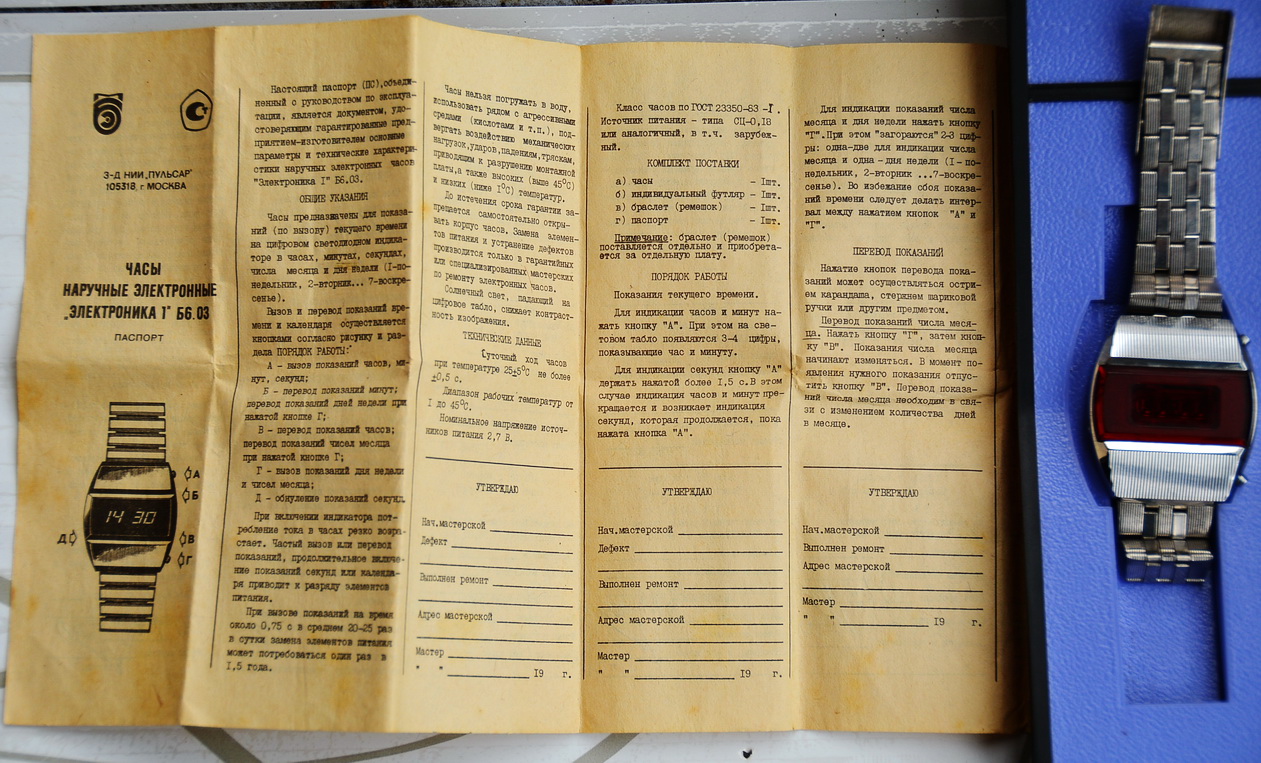 З-Д НИИ „ПУЛЬСАР"
105318, г. МОСКВА
ЧАСЫ
НАРУЧНЫЕ ЭЛЕКТРОННЫЕ
„ЭЛЕКТРОНИКА 1" Б6.03
ПАСПОРТ
14 30
А
Б
Д
В
Г
Настоящий паспорт (ПС), объеди-
ненный с руководством по эксплуа-
тации, является документом, удо-
стоверяющим гарантированные пред-
приятием-изготовителем основные
параметры и технические характери-
стики наручных электронных часов
"Электроника I" Б6.03.
ОБЩИЕ УКАЗАНИЯ
Часы предназначены для показа-
ний (по вызову) текущего времени
на цифровом светодиодном индика-
торе в часах, минутах, секундах,
числа месяца и дня недели (I-по-
недельник, 2-вторник... 7-воскре-
сенье).
Вызов и перевод показаний вре-
мени и календаря осуществляется
кнопками согласно рисунку и раз-
дела ПОРЯДОК РАБОТЫ:
А - вызов показаний часов, ми-
нут, секунд;
Б - перевод показаний минут;
перевод показаний дней недели при
нажатой кнопке Г;
В - перевод показаний часов;
перевод показаний чисел месяца
при нажатой кнопке Г;
Г - вызов показаний дня недели
и чисел месяца;
Д - обнуление показаний секунд.
При включении индикатора пот-
ребление тока в часах резко возра-
стает. Частый вызов или перевод
показаний, продолжительное включе-
ние показаний секунд или календа-
ря приводит к разряду элементов
питания.
При вызове показаний на время
около 0,75 с в среднем 20-25 раз
в сутки замена элементов питания
может потребоваться один раз в
I,5 года.
Часы нельзя погружать в воду,
использовать рядом с агрессивными
средами (кислотами и т.п.), под-
вергать воздействию механических
нагрузок, ударов, падениям, тряскам,
приводящим к разрушению монтажной
платы, а также высоких (выше 45°С)
и низких (ниже I°С) температур.
До истечения срока гарантии за-
прещается самостоятельно откры-
вать корпус часов. Замена элемен-
тов питания и устранение дефектов
производится только в гарантийных
или специализированных мастерских
по ремонту электронных часов.
Солнечный свет, падающий на
цифровое табло, снижает контраст-
ность изображения.
ТЕХНИЧЕСКИЕ ДАННЫЕ
Суточный ход часов
при температуре 25±5°С не более
±0,5 с.
Диапазон рабочих температур от
I до 45°С.
Номинальное напряжение источ-
ников питания 2,7 В.
УТВЕРЖДАЮ
Нач.мастерской
Дефект
Выполнен ремонт
Адрес мастерской
Мастер
" " I9 г.
Класс часов по ГОСТ 23350-83 -I.
Источник питания - типа СЦ-0,I8
или аналогичный, в т.ч. зарубеж-
ный.
КОМПЛЕКТ ПОСТАВКИ
а) часы - Iшт.
б) индивидуальный футляр - Iшт.
в) браслет (ремешок) - Iшт.
г) паспорт - Iшт.
Примечание: браслет (ремешок)
поставляется отдельно и приобрета-
ется за отдельную плату.
ПОРЯДОК РАБОТЫ
Показания текущего времени.
Для индикации часов и минут на-
жать кнопку "А". При этом на све-
товом табло появляются 3-4 цифры,
показывающие час и минуту.
Для индикации секунд кнопку "А"
держать нажатой более I,5 с. В этом
случае индикация часов и минут пре-
кращается и возникает индикация
секунд, которая продолжается, пока
нажата кнопка "А".
УТВЕРЖДАЮ
Нач.мастерской
Дефект
Выполнен ремонт
Адрес мастерской
Мастер
" " I9 г.
Для индикации показаний числа
месяца и дня недели нажать кнопку
"Г". При этом "загораются" 2-3 циф-
ры: одна-две для индикации числа
месяца и одна - дня недели (I - по-
недельник, 2-вторник ...7-воскре-
сенье). Во избежание сбоя показа-
ний времени следует делать интер-
вал между нажатием кнопок "А" и
"Г".
ПЕРЕВОД ПОКАЗАНИЙ
Нажатие кнопок перевода пока-
заний может осуществляться остри-
ем карандаша, стержнем шариковой
ручки или другим предметом.
Перевод показаний числа меся-
ца. Нажать кнопку "Г", затем кноп-
ку "В". Показания числа месяца
начинают изменяться. В момент по-
явления нужного показания отпус-
тить кнопку "В". Перевод показа-
ний числа месяца необходим в свя-
зи с изменением количества дней
в месяце.
УТВЕРЖДАЮ
Нач.мастерской
Выполнен ремонт
Адрес мастерской
Мастер
" " I9 г.